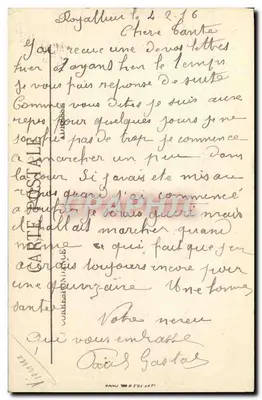 Royallieu le 4 2-16
Chere Tante
J'ai recue une de vos lettres
hier et ayans bien le temps
je vous fais reponse de suite
Comme vous dites je suis au
repos pour quelques jours je ne
pas de trop je commence
a marcher un peu dans
la cour. Si j'avais ete mis au
repos quand j'ai commencé
a je serais gueri mais
il fallait marcher quand
meme a qui faut que j'en
aurais toujours encore pour
une quinzaine. Une bonne
santé
Votre neveu
qui vous embrasse
Gaston
CARTE POSTALE